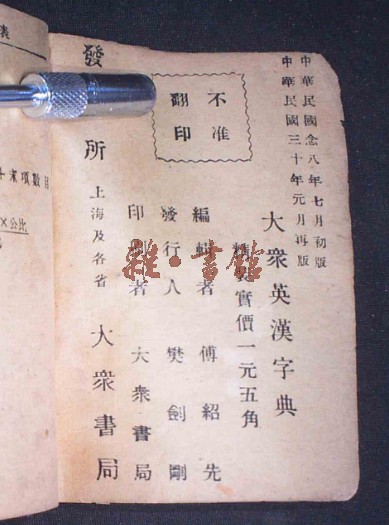 中華民國念八年七月初版
中華民國三十年元月再版
大眾英漢字典
精裝實價一元五角
編輯者 傅紹先
發行人 樊劍剛
印刷者 大眾書局
不准
翻印
發 所 上海及各省 大眾書局
表
末項數目
×公比
雜·書館